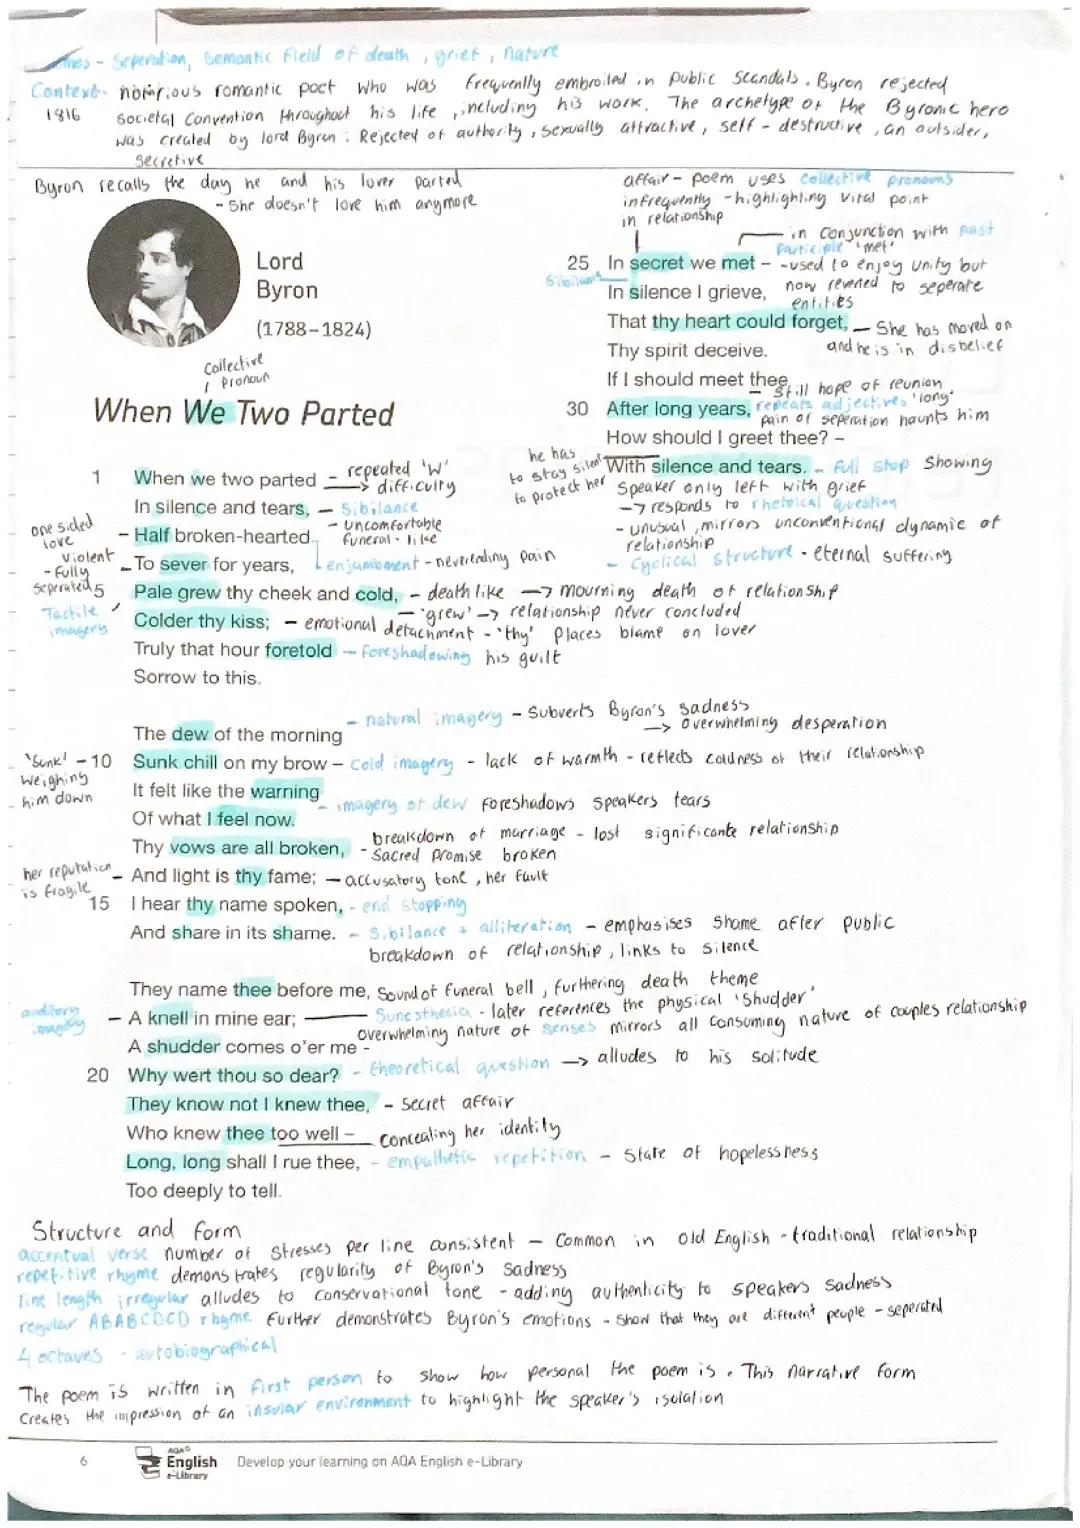 - Seperation, Semantic Field of death, grief, nature
Context - notorious romantic poet who was frequently embroiled in public scandals. Byron rejected
1816 societal convention throughout his life, including his work. The archetype of the Byronic hero
was created by lord Byron: Rejected of authority, sexually attractive, self-destructive, an outsider,
secretive
Byron recalls the day he and his lover parted
- She doesn't love him anymore
Lord
Byron
(1788–1824)
Collective
pronoun
When We Two Parted
1 When we two parted - repeated 'w'
→ difficulty
In silence and tears, - Sibilance
one sided
love
- Half broken-hearted
- uncomfortable
funeral-like
violent
- fully
seperated
- To sever for years, enjambment - neverending pain
5 Pale grew thy cheek and cold, - deathlike → mourning death of relationship
- 'grew' → relationship never concluded
Tactile
imagery
Colder thy kiss; - emotional detachment - 'thy' places blame on lover
Truly that hour foretold - foreshadowing his guilt
Sorrow to this.
The dew of the morning - natural imagery - Subverts Byron's sadness
→ overwhelming desperation
'Sunk' -
weighing
him down
10 Sunk chill on my brow - cold imagery - lack of warmth - reflects coldness of their relationship
It felt like the warning
- imagery of dew foreshadows speakers tears
Of what I feel now.
Thy vows are all broken, - breakdown of marriage - lost significante relationship
- Sacred promise broken
her reputation
is fragile
- And light is thy fame; - accusatory tone, her fault
15 I hear thy name spoken, - end stopping
And share in its shame. - Sibilance + alliteration - emphasises shame after public
breakdown of relationship, links to silence
They name thee before me, Sound of funeral bell, furthering death theme
auditory
imagery
- A knell in mine ear; Sunesthesia - later references the physical 'Shudder'
overwhelming nature of senses mirrors all consuming nature of couples relationship
A shudder comes o'er me -
20 Why wert thou so dear? - theoretical question → alludes to his solitude
They know not I knew thee, - Secret affair
Who knew thee too well – concealing her identity
Long, long shall I rue thee, - empathetic repetition - State of hopelessness
Too deeply to tell.
affair - poem uses collective pronouns
infrequently - highlighting vital point
in relationship
- in conjunction with past
participle 'met'
25 In secret we met – - used to enjoy unity but
now reverted to seperate
entities
Sibilance
In silence I grieve,
That thy heart could forget, - She has moved on
and he is in disbelief
Thy spirit deceive.
If I should meet thee - Still hope of reunion
30 After long years, repeats adjectives 'long'
pain of seperation haunts him
How should I greet thee? –
he has
to stay silent
to protect her
With silence and tears. - Full stop showing
Speaker only left with grief
→ responds to rhetoical question
- unusual, mirrors unconventional dynamic of
relationship
- Cyclical structure - eternal suffering
Structure and form
accentual verse number of stresses per line consistent - Common in old English - traditional relationship
repetitive rhyme demonstrates regularity of Byron's sadness
line length irregular alludes to conservational tone - adding authenticity to speakers sadness
regular ABABCDCD rhyme further demonstrates Byron's emotions - show that they are different people - seperated
4 octaves - autobiographical
The poem is written in first person to show how personal the poem is. This narrative form
creates the impression of an insular environment to highlight the speaker's isolation
6
AQA
English
e-Library
Develop your learning on AQA English e-Library